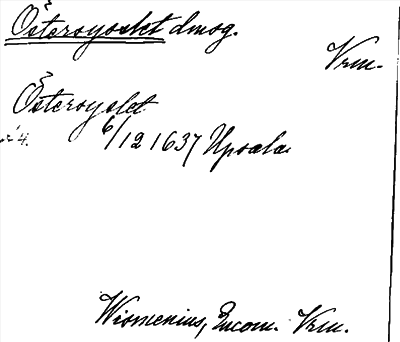 Östersysslet dmog.
Vrm.
Östersyslet
6/12 1637 Upsala
Wismenius, Encom. Vrm.